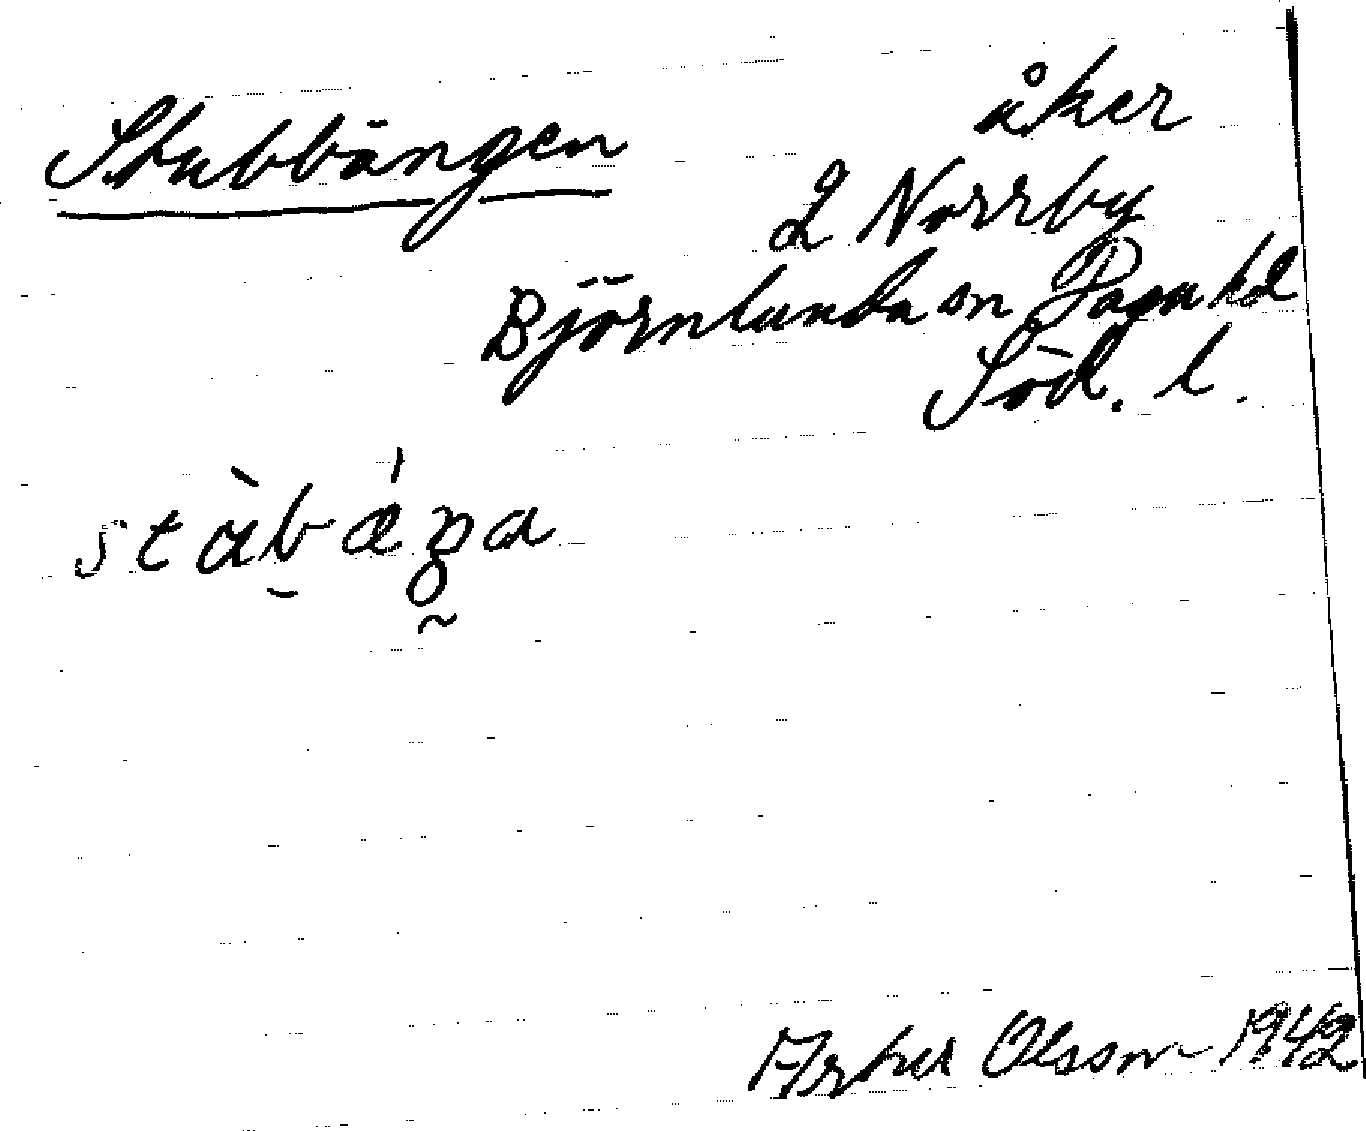 Stubbängen
åker
2 Norrby
Björnlunda sn Daga hd
Söd. l.
stàbǽŋa
Artur Olsson 1942